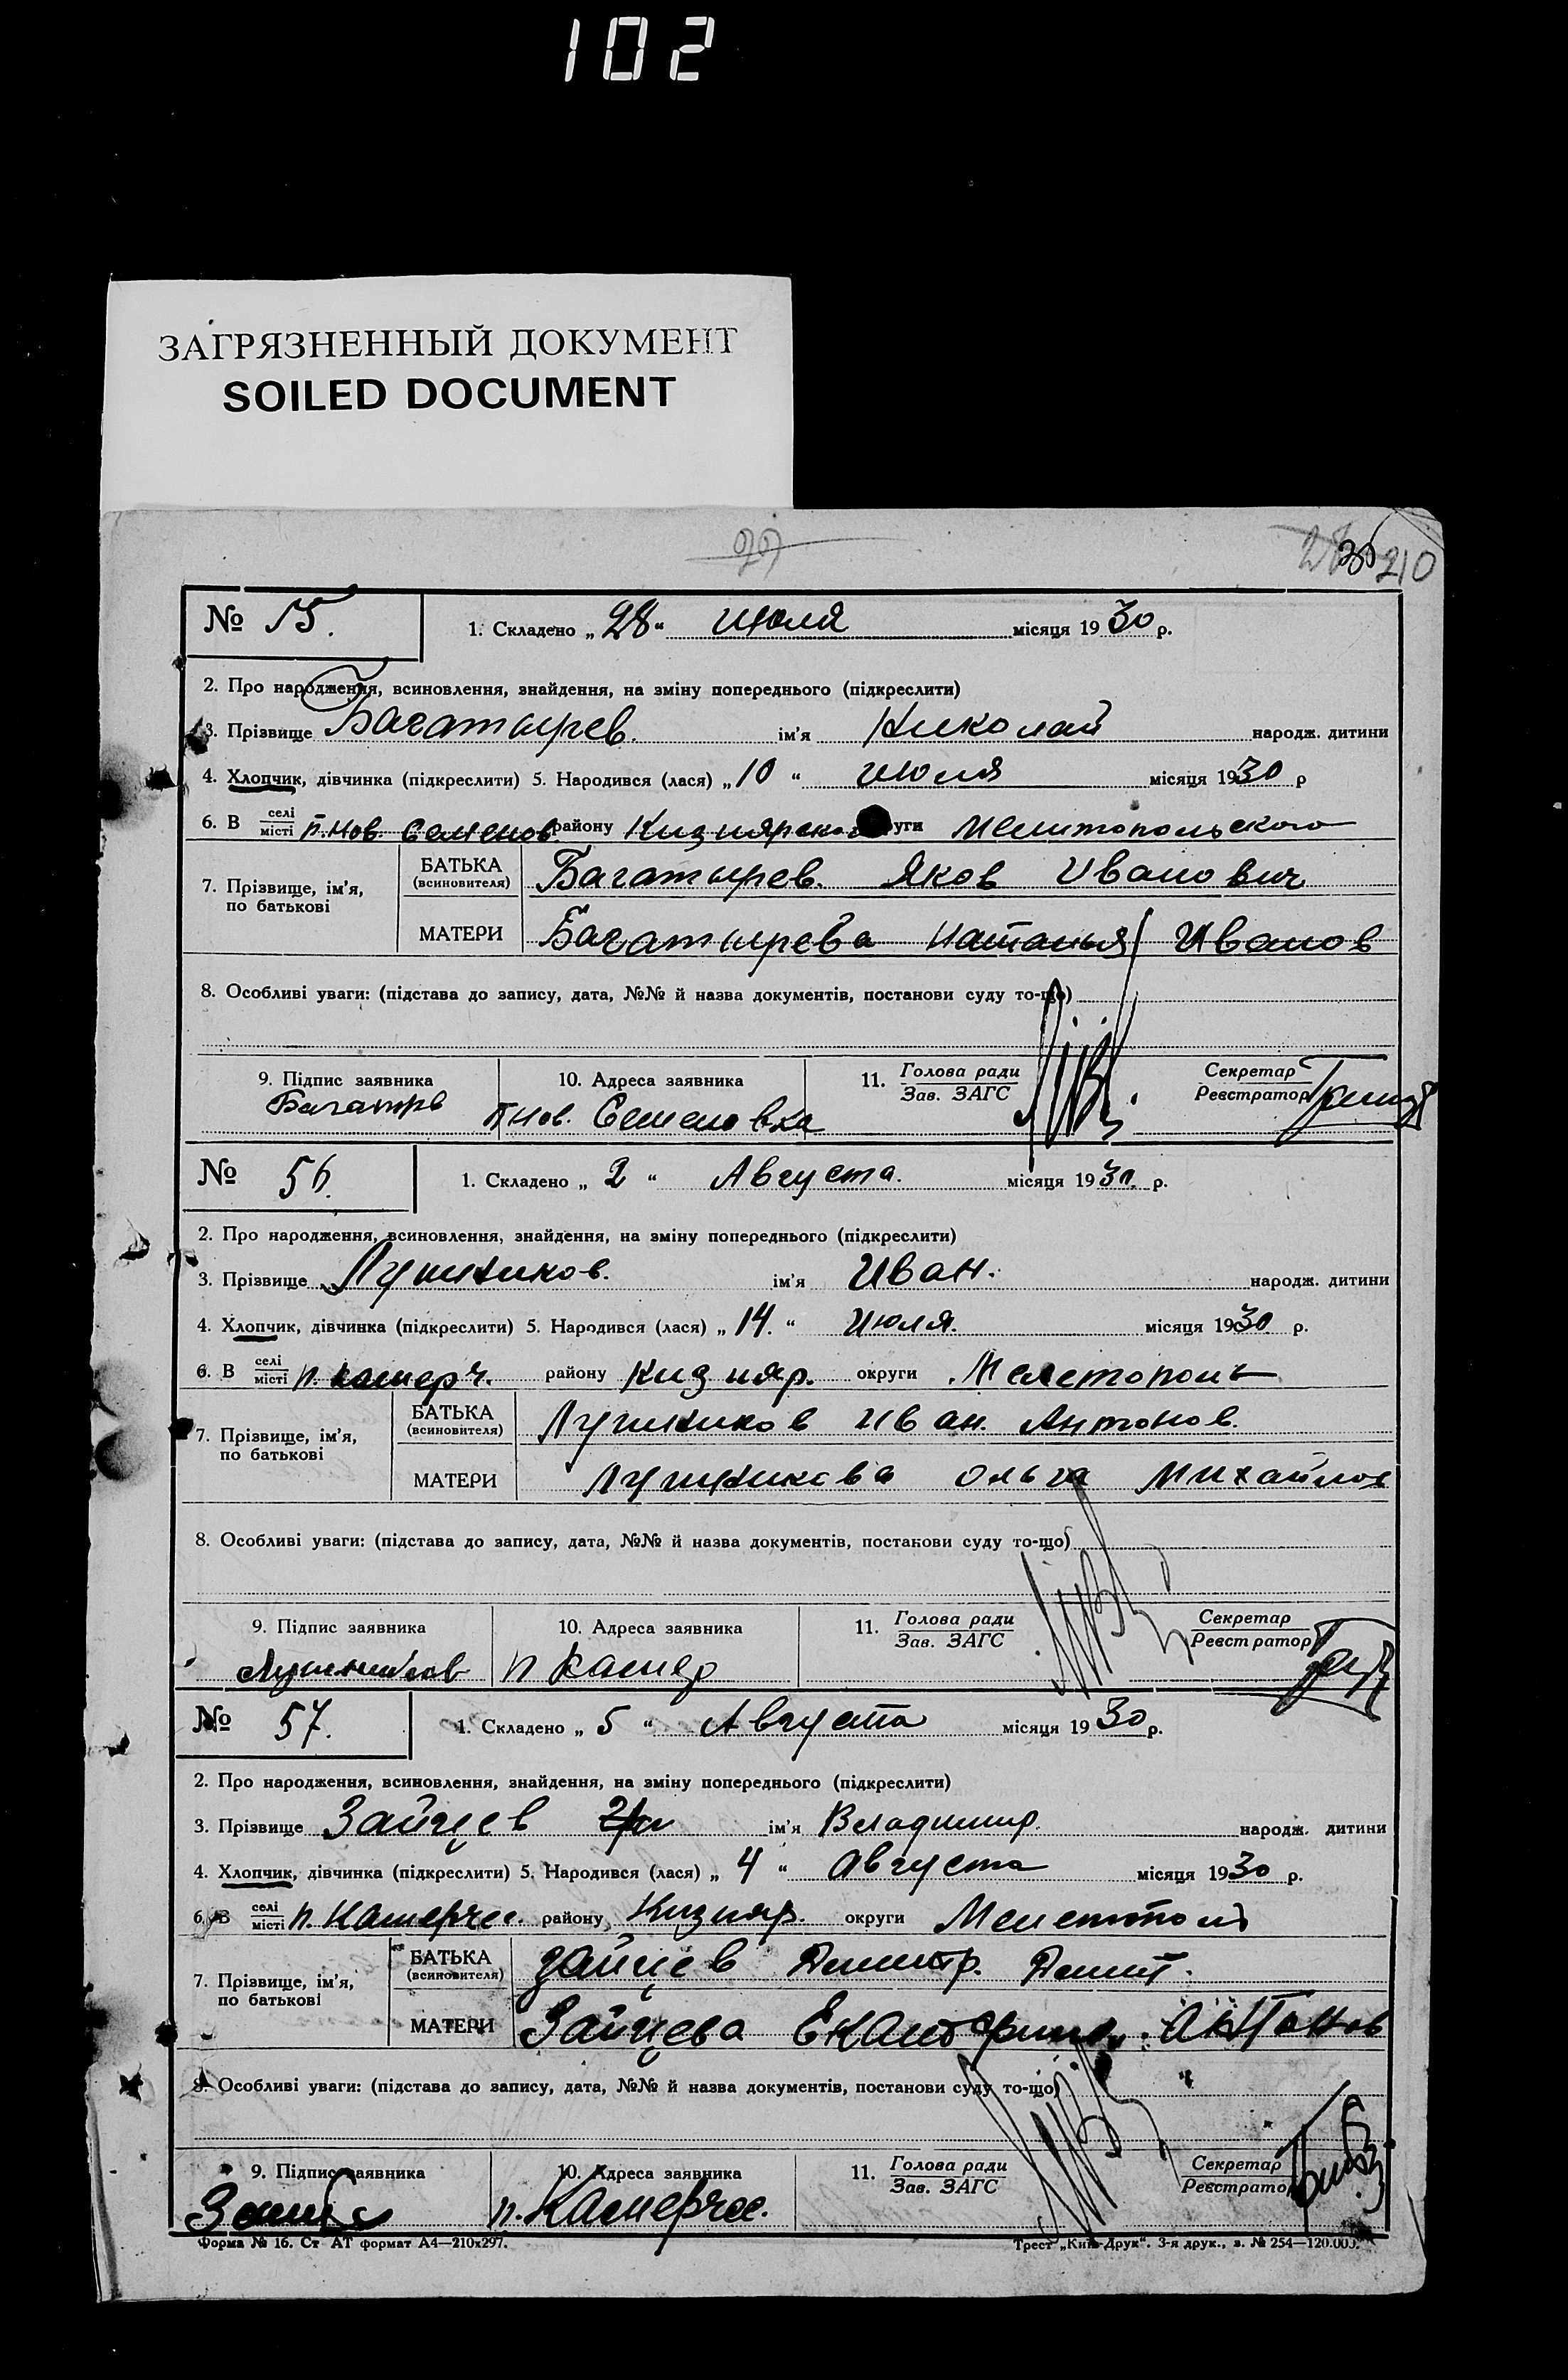 102
ЗАГРЯЗНЕННЫЙ ДОКУМЕНТ
SOILED DOCUMENT
210
№ 55. 1. Складено „28“ Июля місяця 1930 р.
2. Про народження, всиновлення, знайдення, на зміну попереднього (підкреслити)
3. Прізвище Багатырев. ім'я Николай народж. дитини
4. Хлопчик, дівчинка (підкреслити) 5. Народився (лася) „10“ июля місяця 1930 р
6. В селі місті п. Нов. Семенов. району Кизиярского округи Мелитопольского
7. Прізвище, ім'я, по батькові
БАТЬКА (всиновителя) Багатырев. Яков Иванович
МАТЕРИ Багатырева Наталья Иванов
8. Особливі уваги: (підстава до запису, дата, №№ й назва документів, постанови суду то-що)
9. Підпис заявника 10. Адреса заявника 11. Голова ради Зав. ЗАГС Секретар Реєстратор
Багатырв п нов. Семеновка
№ 56. 1. Складено „2“ Августа. місяця 1930. р.
2. Про народження, всиновлення, знайдення, на зміну попереднього (підкреслити)
3. Прізвище Лушников. ім'я Иван. народж. дитини
4. Хлопчик, дівчинка (підкреслити) 5. Народився (лася) „14.“ Июля. місяця 1930 р.
6. В селі місті п. району Кизияр. округи Мелетополь
7. Прізвище, ім'я, по батькові
БАТЬКА (всиновителя) Лушников Иван. Антонов.
МАТЕРИ Лушникова Ольга Михайлов
8. Особливі уваги: (підстава до запису, дата, №№ й назва документів, постанови суду то-що)
9. Підпис заявника 10. Адреса заявника 11. Голова ради Зав. ЗАГС Секретар Реєстратор
Лушников п
№ 57. 1. Складено „5“ Августа місяця 1930 р.
2. Про народження, всиновлення, знайдення, на зміну попереднього (підкреслити)
3. Прізвище Зайцев ім'я Владимир. народж. дитини
4. Хлопчик, дівчинка (підкреслити) 5. Народився (лася) „4“ Августа місяця 1930 р.
6. В селі місті п. району Кизияр. округи Мелетополь
7. Прізвище, ім'я, по батькові
БАТЬКА (всиновителя) Зайцев Дмитр. Дмит.
МАТЕРИ Зайцева Екатерина Антонов
8. Особливі уваги: (підстава до запису, дата, №№ й назва документів, постанови суду то-що)
9. Підпис заявника 10. Адреса заявника 11. Голова ради Зав. ЗАГС Секретар Реєстратор
п.
Форма № 16. Ст АТ формат А4—210x297. Трест „Київ-Друк“. 3-я друк., з. № 254—120.000.